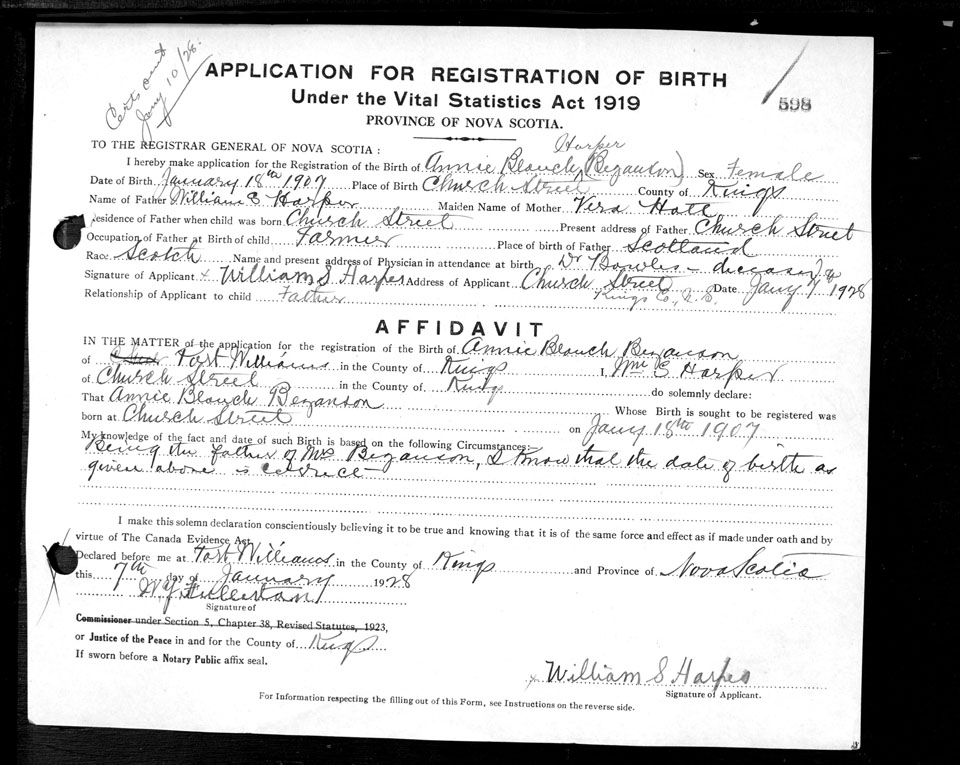 Certs sent
Jany 10/28.
598
APPLICATION FOR REGISTRATION OF BIRTH
Under the Vital Statistics Act 1919
PROVINCE OF NOVA SCOTIA.
TO THE REGISTRAR GENERAL OF NOVA SCOTIA :
Harper
I hereby make application for the Registration of the Birth of Annie Blanch (Bezanson) Sex Female
Date of Birth January 18th 1907 Place of Birth Church Street County of Kings
Name of Father William S Harper Maiden Name of Mother Vera Hall
Residence of Father when child was born Church Street Present address of Father Church Street
Occupation of Father at Birth of child Farmer Place of birth of Father Scotland
Race Scotch Name and present address of Physician in attendance at birth Dr Bowles - deceased
Signature of Applicant x William S Harper Address of Applicant Church Street Date Jany 7 1928
Kings Co., N.S.
Relationship of Applicant to child Father
AFFIDAVIT
IN THE MATTER of the application for the registration of the Birth of Annie Blanch Bezanson
of Port Williams in the County of Kings I, Wm S Harper
of Church Street in the County of Kings do solemnly declare:
That Annie Blanch Bezanson Whose Birth is sought to be registered was
born at Church Street on Jany 18th 1907
My knowledge of the fact and date of such Birth is based on the following Circumstances:
Being the father of Mrs Bezanson, I know that the date of birth as
given above is correct
I make this solemn declaration conscientiously believing it to be true and knowing that it is of the same force and effect as if made under oath and by
virtue of The Canada Evidence Act.
Declared before me at Port Williams in the County of Kings and Province of Nova Scotia
this 7th day of January 1928
Fullerton
Signature of
Commissioner under Section 5, Chapter 38, Revised Statutes, 1923,
or Justice of the Peace in and for the County of Kings
If sworn before a Notary Public affix seal.
x William S Harper
Signature of Applicant.
For Information respecting the filling out of this Form, see Instructions on the reverse side.